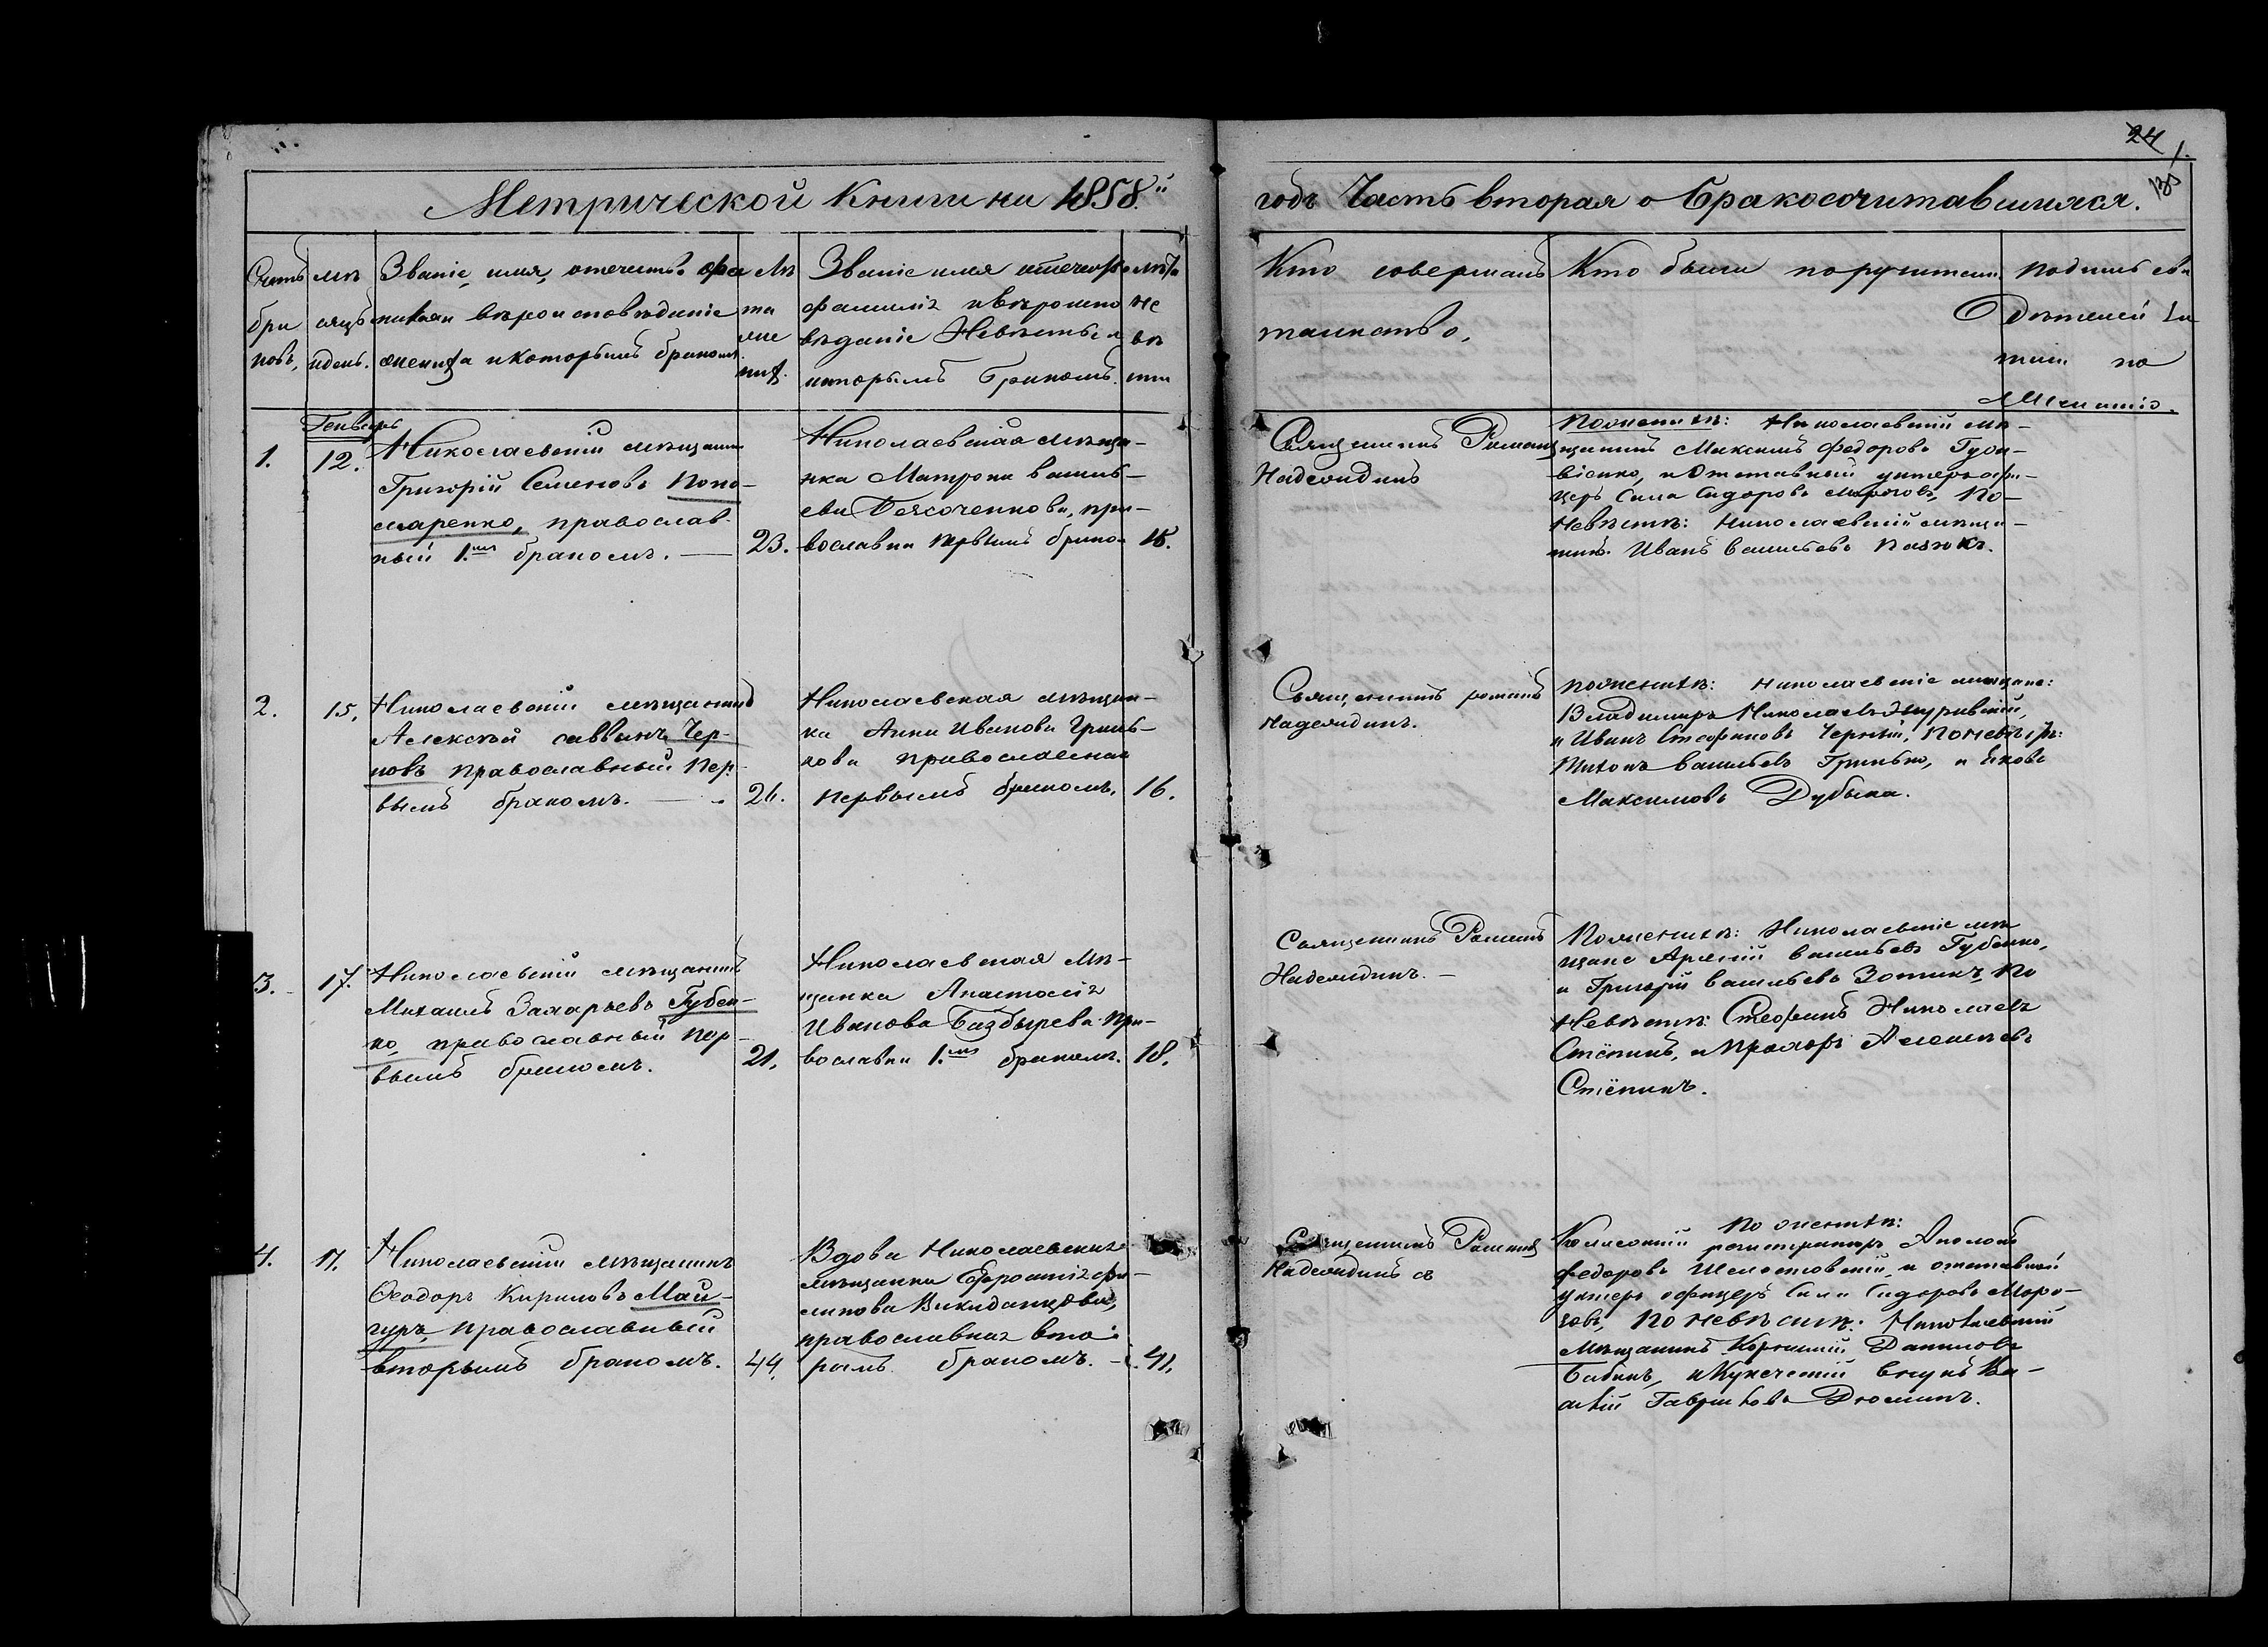 24
1.
Метрической Книги на 1858.й
годъ Часть вторая о Бракосочитавшихся.
Счетъ
бра
ковъ,
мѣ
сяцъ
идень.
Званіе, имя, отечество фа
милія и вѣроисповѣданіе
жениха и которымъ бракомъ.
Лѣ
та
же
них.
Званіе имя отечество
фамилія ивѣроиспо
вѣданіе Невѣсты и
которымъ бракомъ.
лѣта
не
вѣ
сты
Кто совершалъ
таинство,
Кто были поручители
подпись сви
Дѣтелей за
писи по
желанію.
Генварь
1.
12.
Николаевскій мѣщанин
Григорій Семеновъ Поно-
маренко, православ-
ный 1.мъ бракомъ.
23.
Николаевская мѣща-
нка Матрона василь-
ева Бексоченкова, пра-
вославна первымъ брако-
18.
Священникъ Романъ
Надеждинъ
Поженихѣ: Николаевскій мѣ-
щанинъ Максимъ Федоровъ
и Отставный унтеръ офи-
церъ Сила Сидоровъ Морозовъ, По-
Невѣстѣ: Николаевскій мѣща-
нинъ Иванъ васильевъ Пазюкъ.
2.
15.
Николаевскій мѣщанинъ
Алексѣй саввинъ Чер-
новъ православный пер-
вымъ бракомъ.
26.
Николаевская мѣщан-
ка Анна Иванова Гринь-
кова православная
первымъ бракомъ,
16.
Священникъ романъ
надеждинъ.
поженихѣ: николаевскіе мѣщане:
Владимиръ Николаевъ Журавскій,
и Иванъ Стефановъ Черный, Поневѣстѣ:
Тихонъ васильевъ Гринько, и Яковъ
Максимовъ Дубына.
3.
17.
Николаевскій мѣщанинъ
Михаилъ Захарьевъ Губен-
ко, православный пер-
вымъ бракомъ.
21.
Николаевская мѣ-
щанка Анастасія
Иванова Базбырева пра-
вославна 1.мъ бракомъ.
18.
Священникъ Романъ
Надеждинъ.
Поженихѣ: Николаевскіе мѣ
щане Арсеній васильевъ Губенко,
и Григорій васильевъ Зотикъ, по
Невѣстѣ: Стефанъ Николаевъ
Стёпинъ, и Прохоръ Алексѣевъ
Стёпинъ.
4.
17.
Николаевскій мѣщанинъ
Ѳеодоръ Кириловъ Май-
гуръ, православный
вторымъ бракомъ.
44.
Вдова Николаевская
мѣщанка Ефросинія фи-
липова Викиданцова,
православная вто-
рымъ бракомъ.
41.
Священникъ Романъ
Надеждинъ
По женихѣ:
Колежскій регистраторъ Аполонъ
федоровъ Шелестовскій, и отставной
унтеръ офицеръ Сила Сидоровъ Моро-
зовъ, По невѣстѣ: Николаевскій
Мѣщанинъ Корнилій Даниловъ
Бабинъ, иКупеческій внукъ Ва-
силій Гавриловъ Дюминъ.